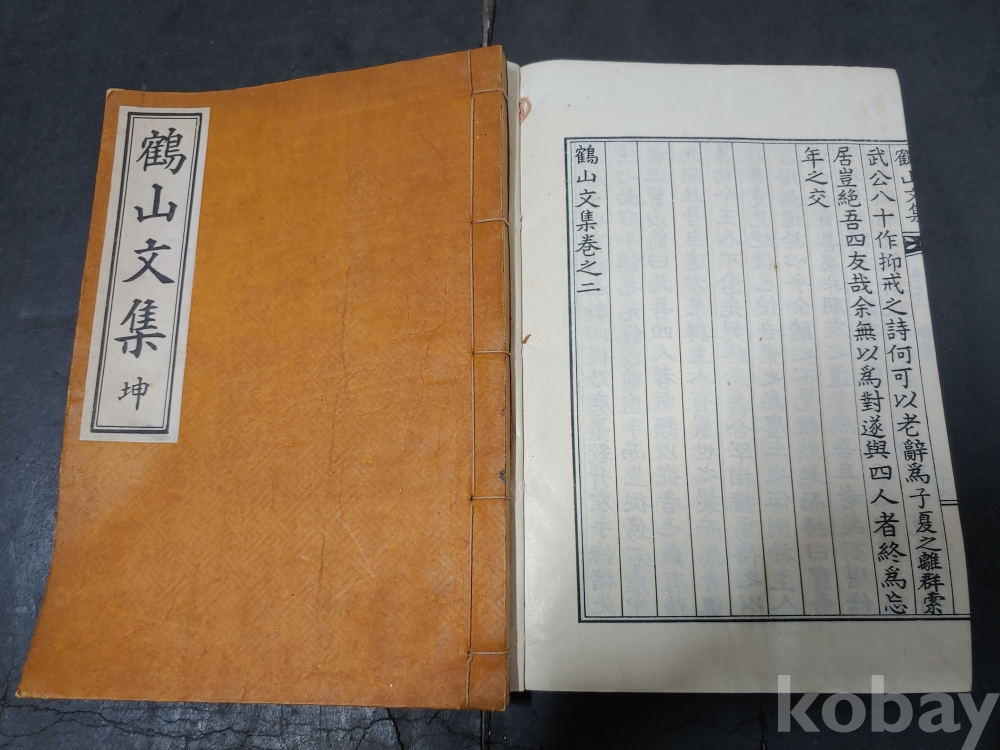 鶴山文集
坤
鶴山文集
武公八十作抑戒之詩何可以老辭爲子夏之離群索
居豈絶吾四友哉余無以爲對遂與四人者終爲忘
年之交
鶴山文集卷之二
kobay